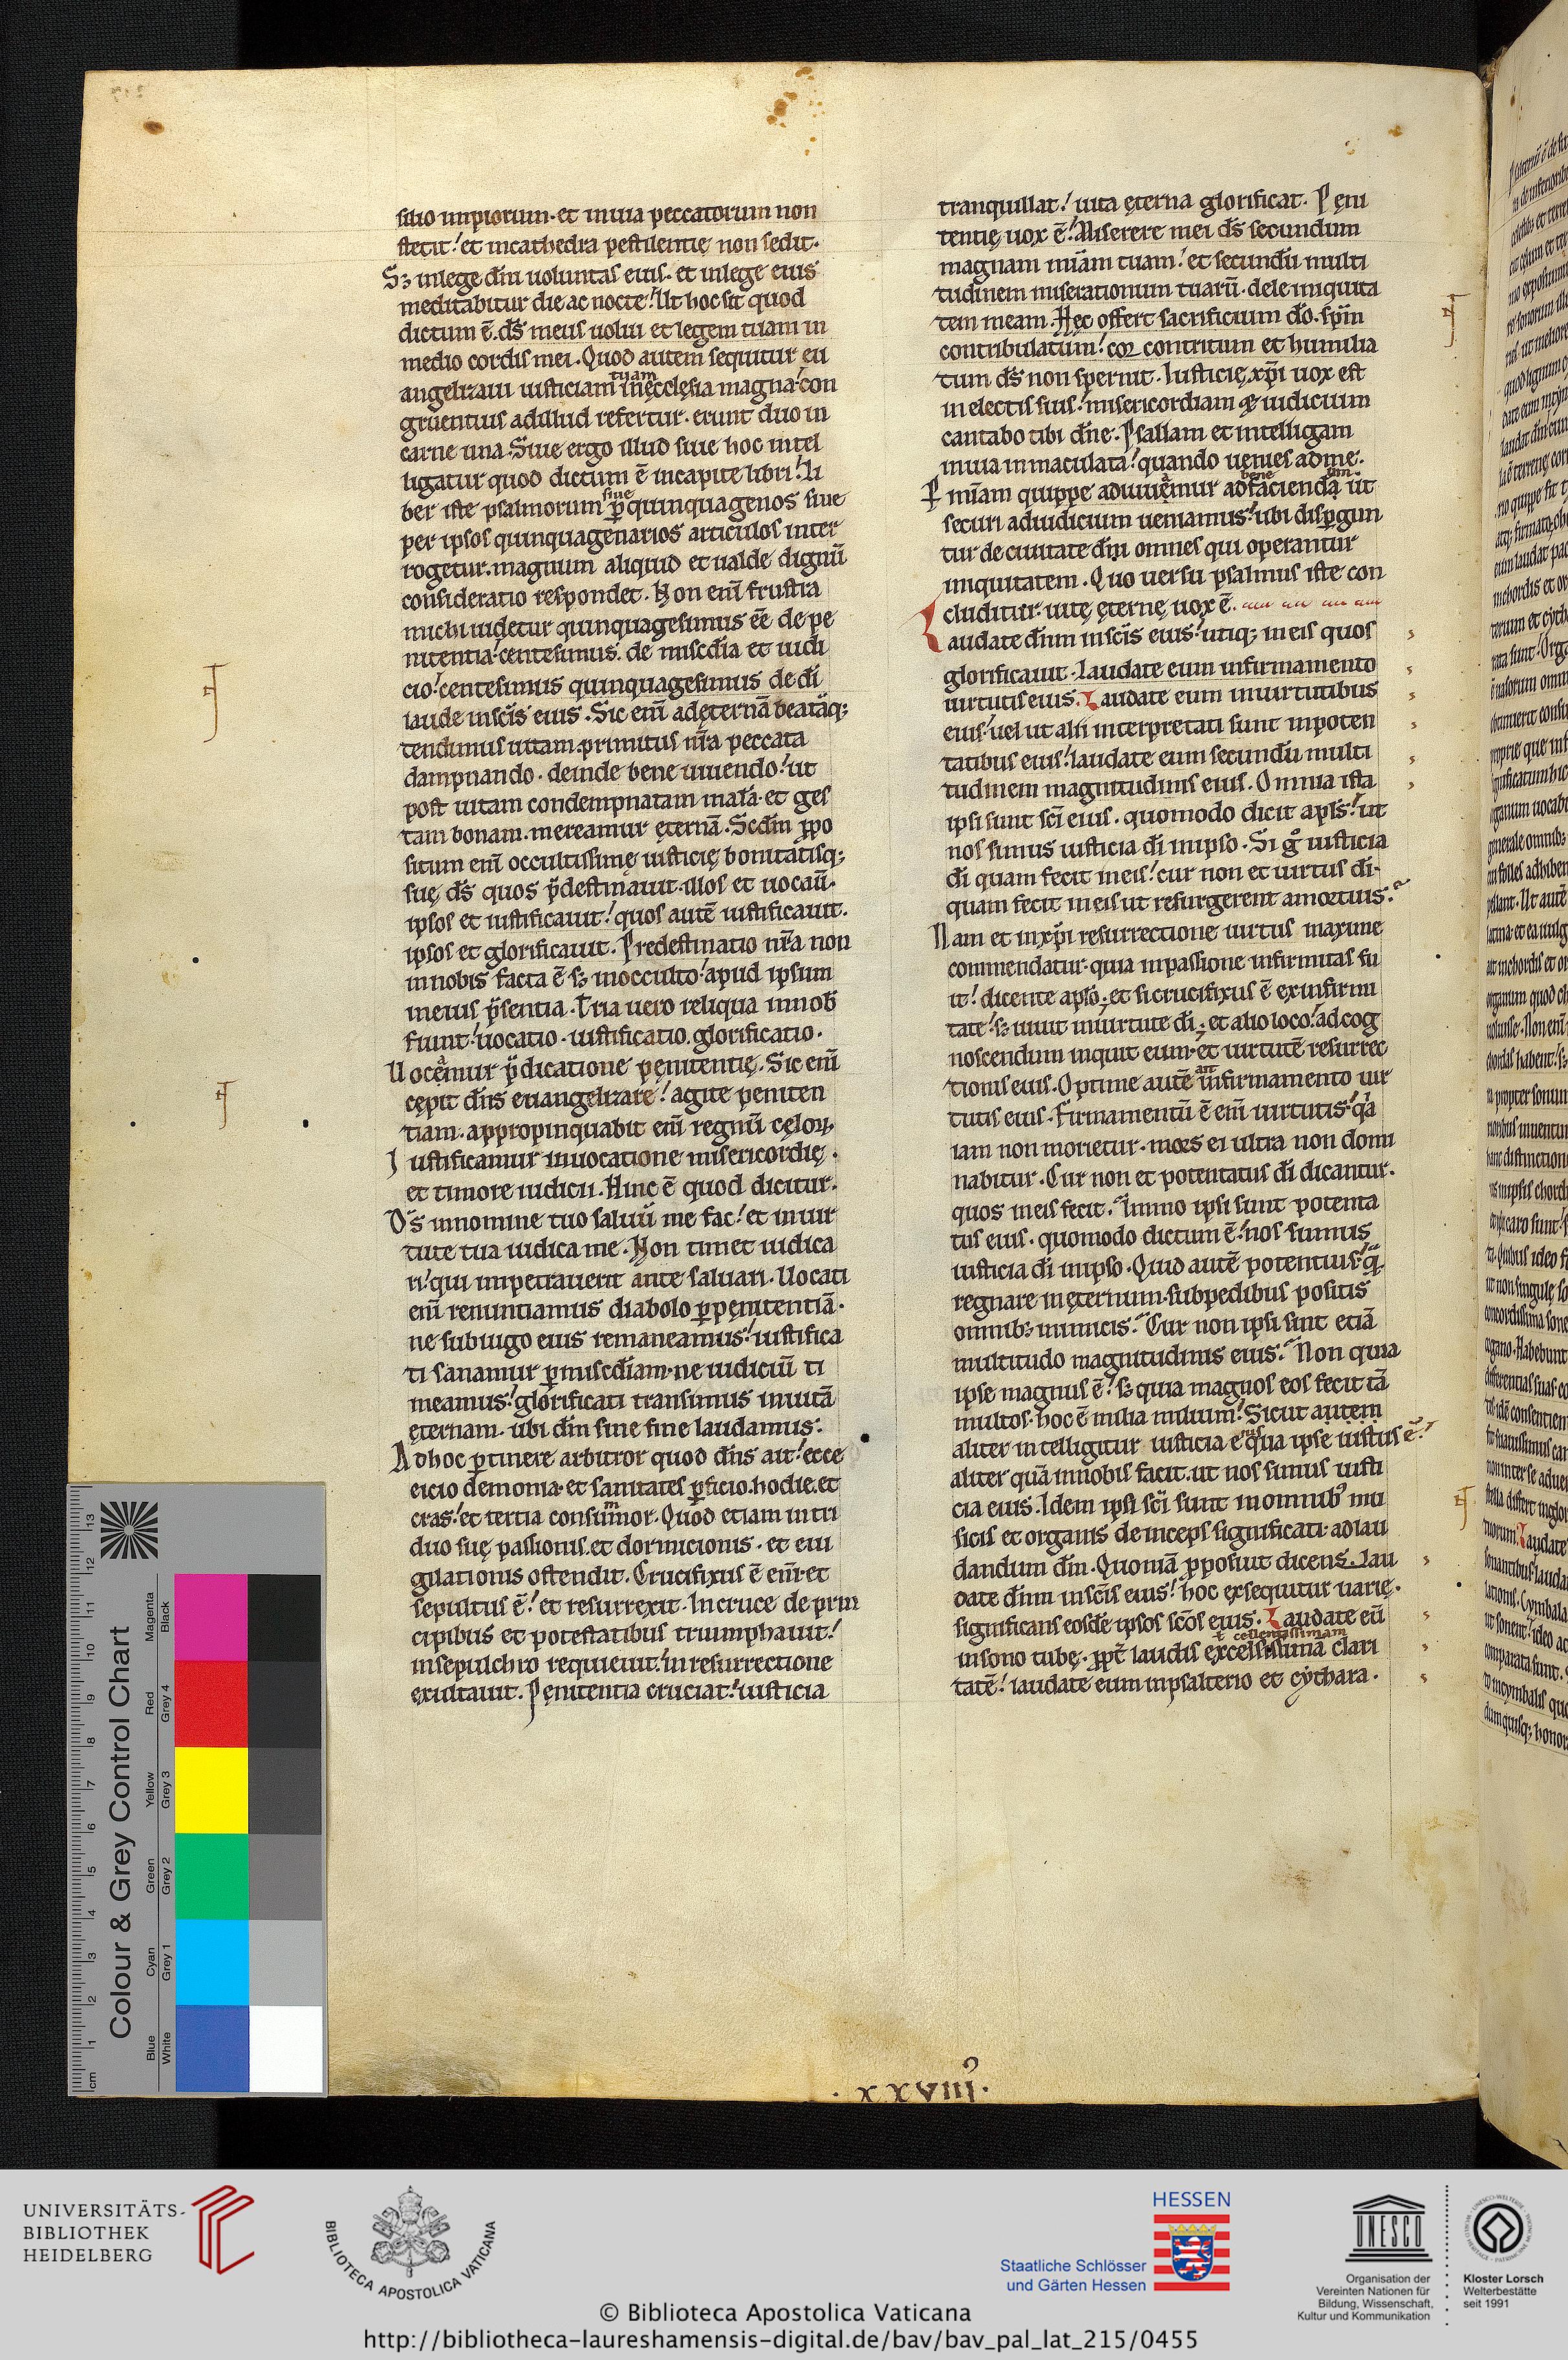 silio impiorum· et in uia peccatorum non
stetit! et in cathedra pestilentię non sedit·
Sꝫ in lege dñi uoluntas eius· et in lege eius
meditabitur die ac nocte! Ut hoc sit quod
dictum ē· ds̄ meus uolui et legem tuam in
medio cordis mei· Quod autem sequitur eu
tuam
angelizaui iusticiam in ęcclesia magna! con
gruentius ad illud refertur· erunt duo in
carne una· Siue ergo illud siue hoc intel
ligatur quod dictum ē in capite libri! li
siue
ber iste psalmorum ꝑ quinquagenos siue
per ipsos quinquagenarios articulos inter
rogetur· magnum aliquid et ualde dignū
consideratio respondet· Non enī frustra
michi uidetur quinquagesimus eē de pe
nitentia! centesimus· de miscđia et iudi
cio! centesimus quinquagesimus de dī
laude in scīs eius· Sic enī ad ęternā beatāqꝫ
tendimus uitam· primitus nr̄a peccata
dampnando· deinde bene uiuendo! ut
post uitam condempnatam malā· et ges
tam bonam· mereamur ęternā· Scđm ꝓpo
situm enī occultissimę iusticię bonitatisqꝫ
suę· ds̄ quos p̄destinauit· illos et uocaū·
ipsos et iustificauit! quos autē iustificauit·
ipsos et glorificauit· Predestinatio nr̄a non
in nobis facta ē sꝫ in occulto! apud ipsum
in eius p̄sentia· Tria uero reliqua in nob̄
fiunt! uocatio· iustificatio· glorificatio·
Uocamur p̄dicatione pęnitentię· Sic enī
cępit dñs euangelizare! agite peniten
tiam· appropinquabit enī regnū cęloꝝ·
Iustificamur inuocatione misericordię·
et timore iudicii· Hinc ē quod dicitur·
Ds̄ in nomine tuo saluū me fac! et in uir
tute tua iudica me· Non timet iudica
ri! qui impetrauerit ante saluari· Uocati
enī renuntiamus diabolo ꝑ pęnitentiā·
ne sub iugo eius remaneamus! iustifica
ti sanamur ꝑ miscđiam· ne iudiciū ti
meamus! glorificati transimus in uitā
ęternam· ubi dm̄ sine fine laudamus·
Ad hoc ꝑtinere arbitror quod dñs ait! ecce
eicio demonia· et sanitates ꝑficio· hodie· et
cras! et tertia consummor· Quod etiam in tri
duo suę passionis· et dormicionis· et eui
gilationis ostendit· Crucifixus ē enī· et
sepultus ē! et resurrexit· In cruce de prin
cipibus et potestatibus triumphauit!
in sepulchro requieuit! in resurrectione
exultauit· Penitentia cruciat! iusticia
tranquillat! uita ęterna glorificat· Peni
tentię uox ē! Miserere mei ds̄ secundum
magnam mīam tuam! et secundū multi
tudinem miserationum tuarū· dele iniquita
tem meam· Hęc offert sacrificium dō· sp̄m
contribulatum! cor contritum et humilia
tum ds̄ non spernit· Iusticię· xp̄i uox est
in electis suis! misericordiam & iudicium
cantabo tibi dñe· Psallam et intelligam
in uia inmaculata! quando uenies ad me·
bene
Ꝑ mīam quippe adiuuamur ad faciendā ut
securi ad iudicium ueniamus! ubi disꝑgun
tur de ciuitate dñi omnes qui operantur
iniquitatem· Quo uersu psalmus iste con
cluditur· uitę ęternę uox ē·
Laudate dñm in scīs eius! utiqꝫ in eis quos
glorificauit· Laudate eum in firmamento
uirtutis eius· Laudate eum in uirtutibus
eius! uel ut alii interpretati sunt in poten
tatibus eius! laudate eum secundū multi
tudinem magnitudinis eius· Omnia ista
ipsi sunt scī eius· quomodo dicit apls̄! ut
nos simus iusticia dī in ipso· Si gͦ iusticia
dī quam fecit in eis! cur non et uirtus dī·
quam fecit in eis ut resurgerent a mortuis·
Nam et in xp̄i resurrectione uirtus maxime
commendatur· quia in passione infirmitas fu
it! dicente aplō· et si crucifixus ē ex infirmi
tate! sꝫ uiuit in uirtute dī· et alio loco! ad cog
noscendum inquit eum· et uirtutē resurrec
ait
tionis eius· Optime autē in firmamento uir
tutis eius· Firmamentū ē enī uirtutis! qa
iam non morietur· mors ei ultra non domi
nabitur· Cur non et potentatus dī dicantur·
quos in eis fecit· Immo ipsi sunt potenta
tus eius· quomodo dictum ē! nos sumus
iusticia dī in ipso· Quid autē potentius! q̄
regnare in ęternum· sub pedibus positis
omnibꝫ inimicis· Cur non ipsi sint etiā
multitudo magnitudinis eius· Non quia
ipse magnus ē! sꝫ quia magnos eos fecit tā
multos· hoc ē milia milium! Sicut autem
aliter intelligitur iusticia eius qua ipse iustus ē!
aliter quā in nobis facit· ut nos simus iusti
cia eius· Idem ipsi scī sunt in omnibꝰ mu
sicis et organis deinceps significati· ad lau
dandum dm̄· Quoniā ꝓposuit dicens· Lau
date dñm in scīs eius! hoc exsequitur uarię·
significans eosdē ipsos scōs eius· Laudate eū
ł cellentissimam
in sono tubę· ꝓpt̄ laudis excelsissimā clari
tatē! laudate eum in psalterio et cythara·
·XXXVIIII·
Colour & Grey Control Chart
Blue Cyan Green Yellow Red Magenta
White Grey 1 Grey 2 Grey 3 Grey 4 Black
cm 1 2 3 4 5 6 7 8 9 10 11 12 13
UNIVERSITÄTS-
BIBLIOTHEK
HEIDELBERG
BIBLIOTECA APOSTOLICA VATICANA
HESSEN
Staatliche Schlösser
und Gärten Hessen
UNESCO
Organisation der
Vereinten Nationen für
Bildung, Wissenschaft,
Kultur und Kommunikation
Kloster Lorsch
Welterbestätte
seit 1991
© Biblioteca Apostolica Vaticana
http://bibliotheca-laureshamensis-digital.de/bav/bav_pal_lat_215/0455